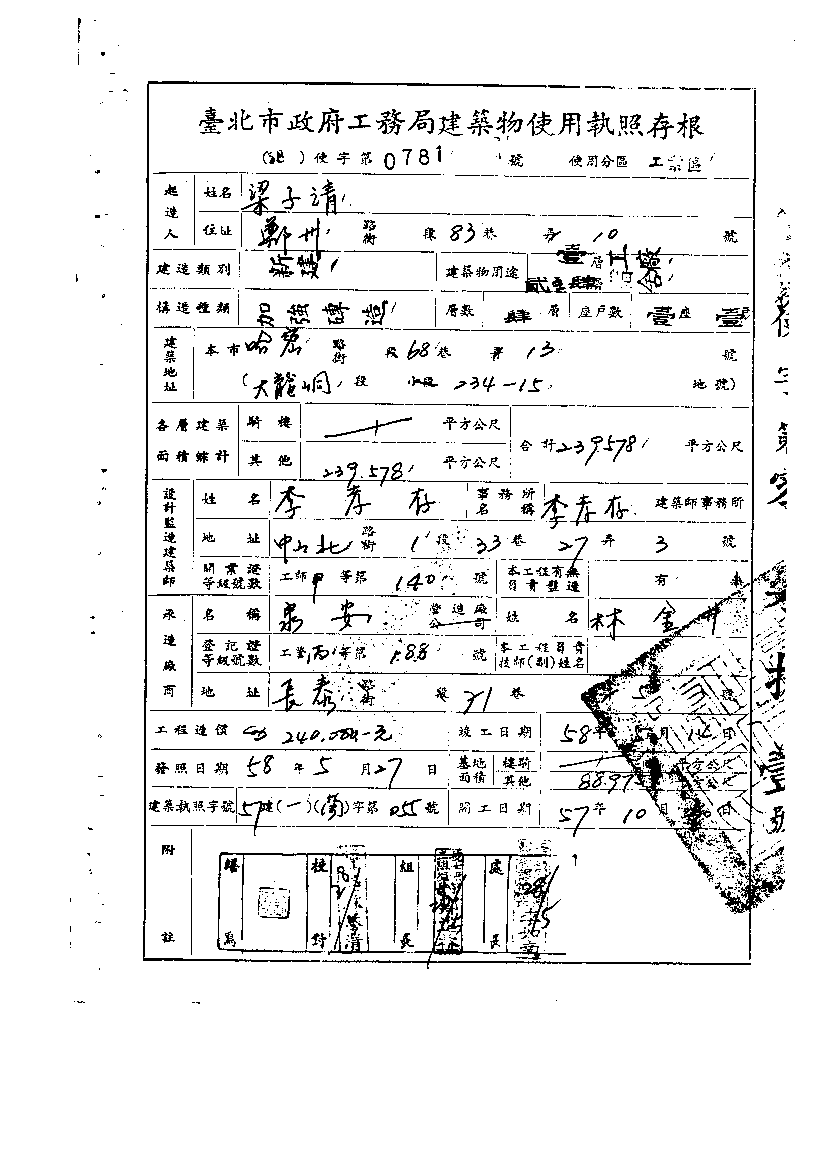 臺北市政府工務局建築物使用執照存根
使字第0781號 使用分區 工業區
起造人 姓名 梁子清
住址 鄭州 路街 段83巷 弄10 號
建造類別 新建 建築物用途 壹層工廠 貳至肆 舍
構造種類 加強磚造 層數 肆層 座戶數 壹座 壹
建築地址 本市哈密 路街 段68巷 弄13 號
(大龍峒段 小段234-15 地號)
各層建築面積總計 騎樓 平方公尺 合計239.578 平方公尺
其他 239.578 平方公尺
設計監造建築師 姓名 李孝存 事務所名稱 李孝存 建築師事務所
地址 中山北 路街 1段33巷27弄3號
開業證等級號數 工師甲等第140號 本工程有無負責監造 有
承造廠商 名稱 泉安 營造廠公司 姓名 林金井
登記證等級號數 工營丙等第188號 本工程負責技師(副)姓名
地址 長泰 路街 段21巷 5 號
工程造價 240,000元 竣工日期 58年5月 日
發照日期 58年5月27日 基地面積 騎樓 平方公尺
其他 88.975 公尺
建築執照字號 57建(一) 字第055號 開工日期 57年10月 日
附註 繕寫 校對 組長 處長